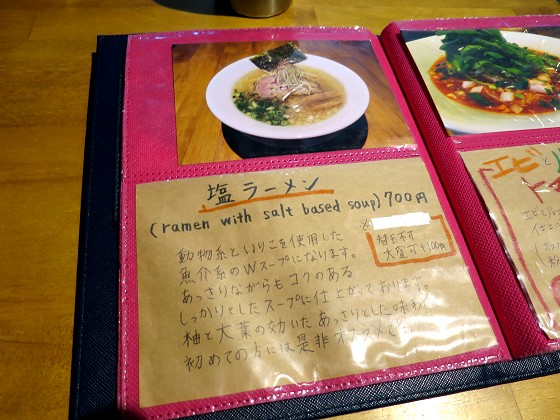 塩ラーメン
(ramen with salt based soup) 700円
※
替玉不可
大盛可+100円
動物系といりこを使用した
魚介系のWスープになります。
あっさりながらもコクのある
しっかりとしたスープに仕上がっております。
柚と大葉の効いたあっさりとした味わい
初めての方には是非オススメです。
エビと